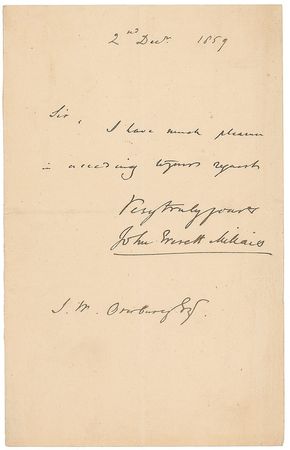 2nd Decr. 1859
Sir,
I have much pleasure
in acceding to your request
Very truly yours
John Everett Millais
J. W. Esq.